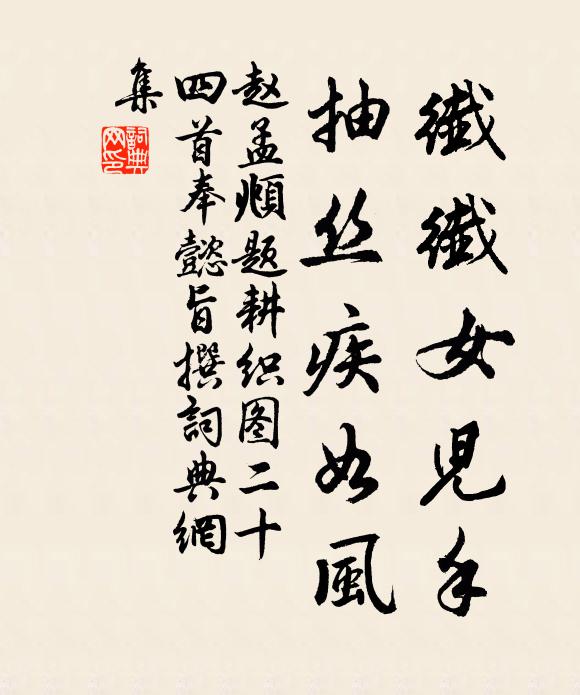 纖纖女児手
抽丝疾如風
赵孟頫题耕织图二十
四首奉懿旨撰詞典網
集
詞典網印